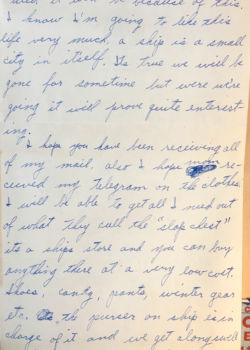 because of this,
I know I'm going to like this
life very much, a ship is a small
city in itself. Its true we will be
gone for sometime but were we're
going it will prove quite interest-
ing.
I hope you have been receiving all
of my mail, also I hope mom re-
ceived my telegram on the clothes,
I will be able to get all I need out
of what they call the "slop chest"
its a ships store and you can buy
anything there at a very low cost.
Shoes, candy, pants, winter gear
etc. the purser on ship is in
charge of it and we get along swell